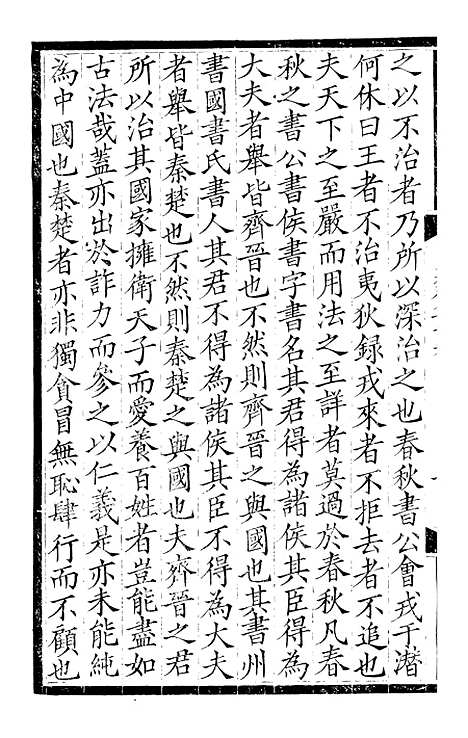 之以不治者乃所以深治之也春秋書公會戎于潛
何休曰王者不治夷狄録戎來者不拒去者不追也
夫天下之至嚴而用法之至詳者莫過於春秋凡春
秋之書公書侯書字書名其君得為諸侯其臣得為
大夫者舉皆齊晉也不然則齊晉之與國也其書州
書國書氏書人其君不得為諸侯其臣不得為大夫
者舉皆秦楚也不然則秦楚之與國也夫齊晉之君
所以治其國家擁衛天子而愛養百姓者豈能盡如
古法哉蓋亦出於詐力而參之以仁義是亦未能純
為中國也秦楚者亦非獨貪冒無恥肆行而不顧也